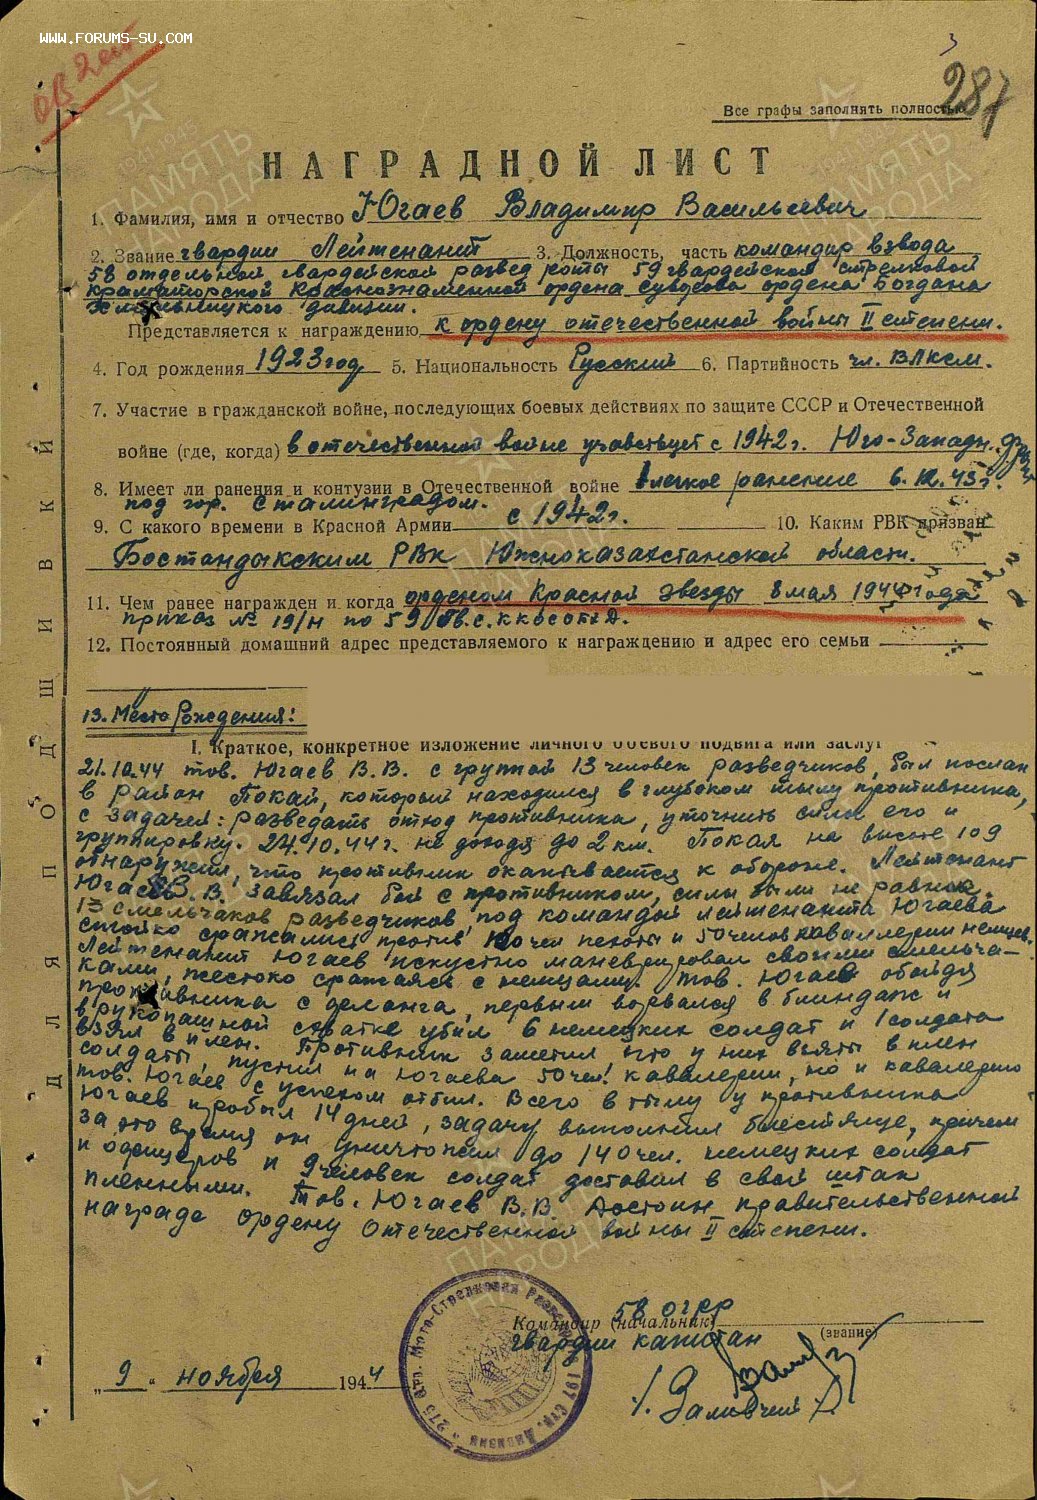 WWW.FORUMS-SU.COM
3
287
Все графы заполнять полностью
НАГРАДНОЙ ЛИСТ
1. Фамилия, имя и отчество Югаев Владимир Васильевич
2. Звание гвардии Лейтенант 3. Должность, часть командир взвода
58 отдельной гвардейской развед роты 59 гвардейской стрелковой
краматорской Краснознаменной ордена Суворова ордена Богдана
Хмельницкого дивизии.
Представляется к награждению к ордену отечественной войны II степени.
4. Год рождения 1923 год 5. Национальность Русский 6. Партийность чл. ВЛКСМ.
7. Участие в гражданской войне, последующих боевых действиях по защите СССР и Отечественной
войне (где, когда) в отечественной войне участвует с 1942 г. Юго-Западн.
8. Имеет ли ранения и контузии в Отечественной войне легкое ранение 6.12.43г.
под гор. Сталинградом.
9. С какого времени в Красной Армии с 1942 г. 10. Каким РВК призван
Бостандыкским РВК Южноказахстанской области.
11. Чем ранее награжден и когда орденом Красной звезды 8 мая 1944 года
приказ № 19/н по 59 Гв.с.ККОСОБХД.
12. Постоянный домашний адрес представляемого к награждению и адрес его семьи
13. Место Рождения:
I. Краткое, конкретное изложение личного боевого подвига или заслуг
21.10.44 тов. Югаев В.В. с группой 13 человек разведчиков, был послан
в район Покай, который находился в глубоком тылу противника,
с задачей: разведать отход противника, уточнить силы его и
группировку. 24.10.44 г. не доходя до 2 км. Покая на высоте 109
обнаружил, что противник окапывается к обороне. Лейтенант
Югаев В.В. завязал бой с противником, силы были не равные.
13 смельчаков разведчиков, под командой лейтенанта Югаева
стойко сражались против чел пехоты и 50 челов каваллерии немцев.
Лейтенант Югаев искустно маневрировал своими смельча-
ками, жестоко сражаясь с немцами. тов. Югаев обойдя
противника с фланга, первым ворвался в блиндаж и
в рукопашной схватке убил 6 немецких солдат и 1 солдата
взял в плен. Противник заметил, что у них взяты в плен
солдаты, пустил на Югаева 50 чел. кавалерии, но и кавалерию
тов. Югаев с успехом отбил. Всего в тылу у противника
Югаев пробыл 14 дней, задачу выполнил блестяще, причем
за это время он уничтожил до 140 чел. немецких солдат
и офицеров и 9 человек солдат доставил в свой штаб
пленными. Тов. Югаев В.В. Достоин правительственной
награде ордену Отечественной войны II степени.
58 огрр
Командир (начальник)
гвардии капитан (звание)
/ Заливчей /
„ 9 " ноября 1944
ДЛЯ ПОДШИВКИ
ПАМЯТЬ НАРОДА
1941 1945